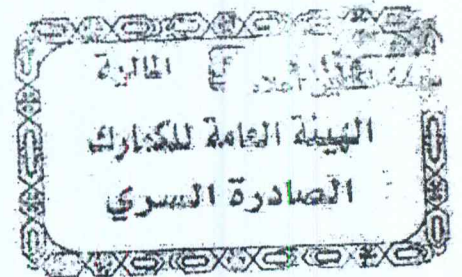 المالية
الهيئة العامة للكمارك
الصادرة السري